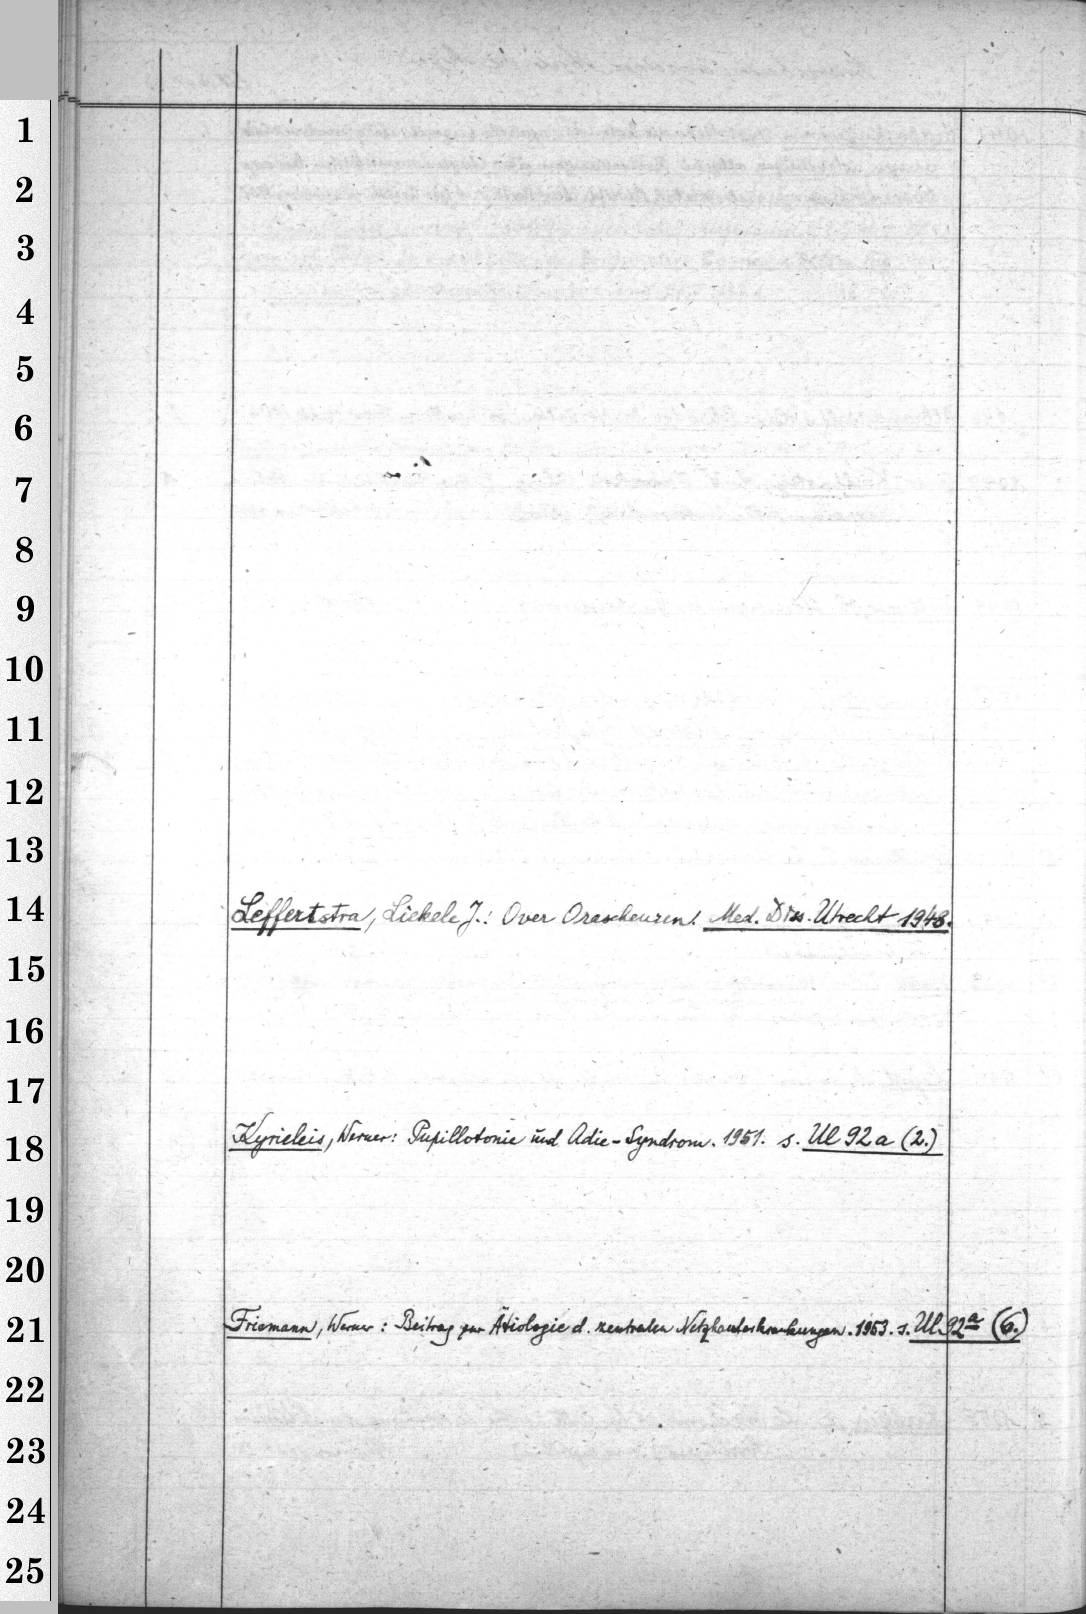 1
2
3
4
5
6
7
8
9
10
11
12
13
14
Leffertstra, Liekele J.: Over Orascheuren. Med. Diss. Utrecht 1948.
15
16
17
18
Kyrieleis, Werner: Pupillotonie und Adie-Syndrom. 1951. s. Ul 92 a (2.)
19
20
21
Friemann, Werner: Beitrag zur Ätiologie d. zentralen Netzhauterkrankungen. 1953. s. Ul 92a (6.)
22
23
24
25